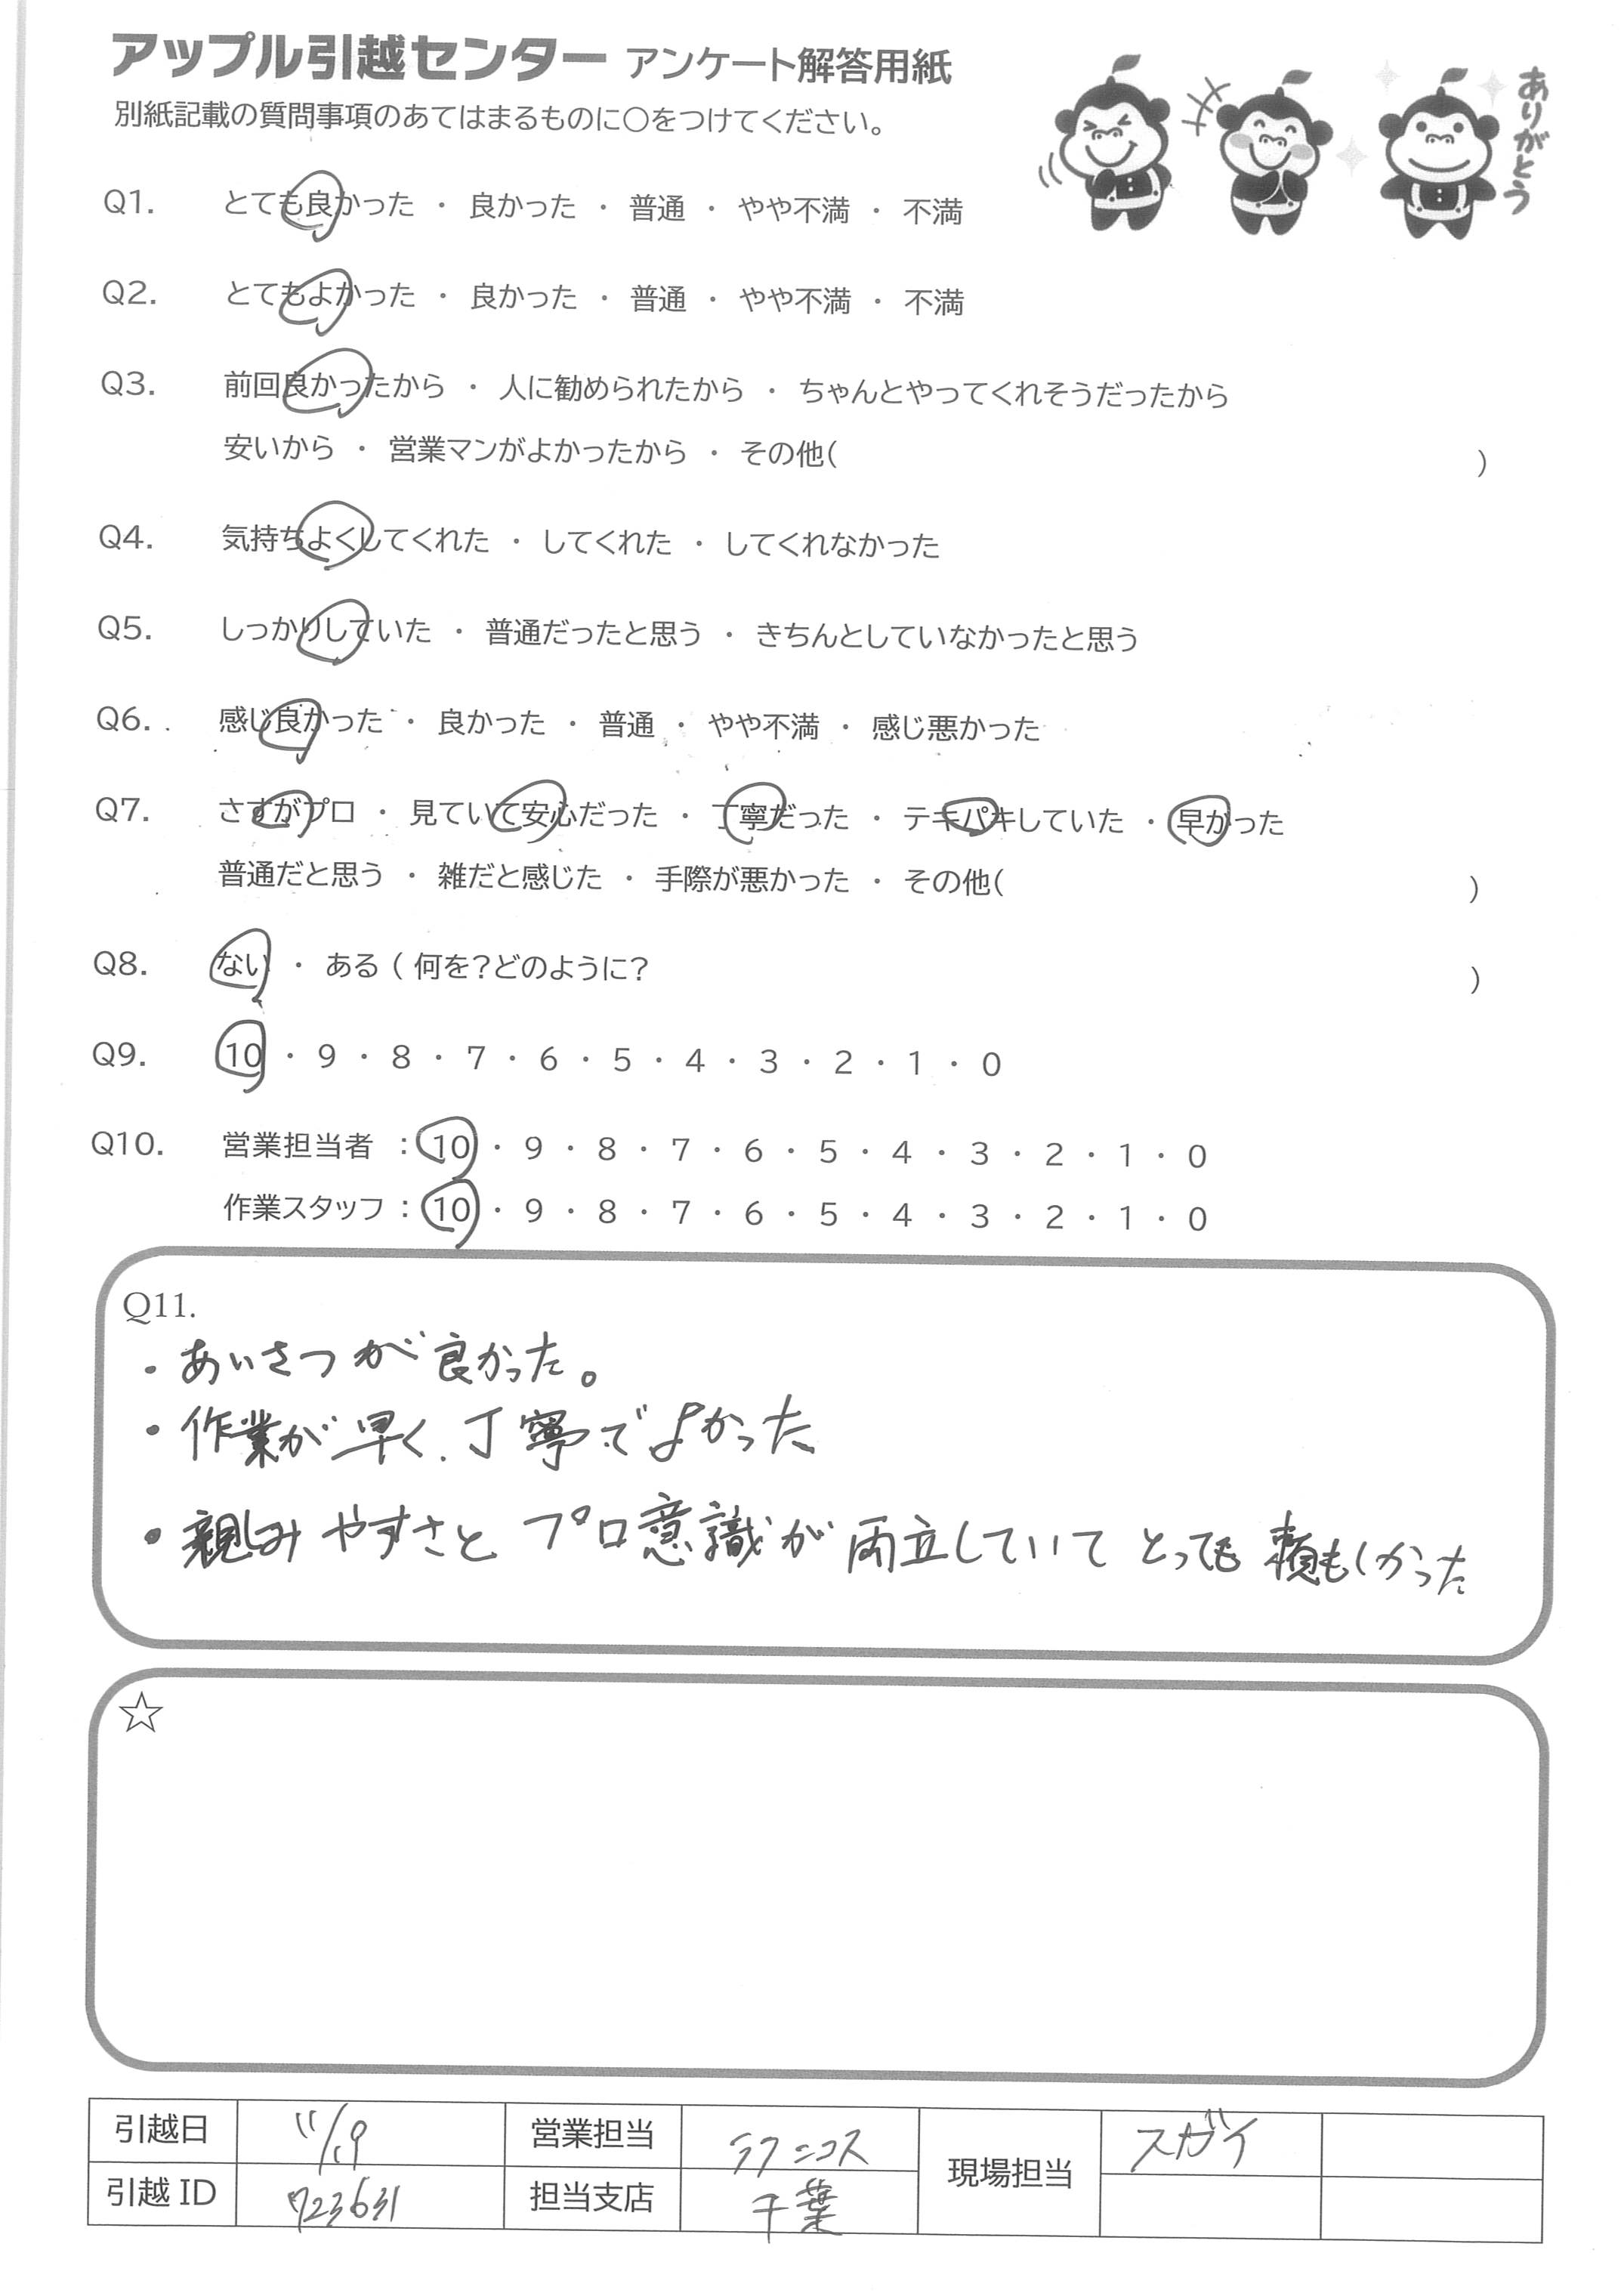 アップル引越センター アンケート解答用紙
別紙記載の質問事項のあてはまるものに○をつけてください。
ありがとう
Q1. とても良かった ・ 良かった ・ 普通 ・ やや不満 ・ 不満
Q2. とてもよかった ・ 良かった ・ 普通 ・ やや不満 ・ 不満
Q3. 前回良かったから ・ 人に勧められたから ・ ちゃんとやってくれそうだったから
安いから ・ 営業マンがよかったから ・ その他( )
Q4. 気持ちよくしてくれた ・ してくれた ・ してくれなかった
Q5. しっかりしていた ・ 普通だったと思う ・ きちんとしていなかったと思う
Q6. 感じ良かった ・ 良かった ・ 普通 ・ やや不満 ・ 感じ悪かった
Q7. さすがプロ ・ 見ていて安心だった ・ 丁寧だった ・ テキパキしていた ・ 早かった
普通だと思う ・ 雑だと感じた ・ 手際が悪かった ・ その他( )
Q8. ない ・ ある ( 何を？どのように？ )
Q9. 10 ・ 9 ・ 8 ・ 7 ・ 6 ・ 5 ・ 4 ・ 3 ・ 2 ・ 1 ・ 0
Q10. 営業担当者 : 10 ・ 9 ・ 8 ・ 7 ・ 6 ・ 5 ・ 4 ・ 3 ・ 2 ・ 1 ・ 0
作業スタッフ : 10 ・ 9 ・ 8 ・ 7 ・ 6 ・ 5 ・ 4 ・ 3 ・ 2 ・ 1 ・ 0
Q11.
・あいさつが良かった。
・作業が早く、丁寧でよかった
・親しみやすさと プロ意識が 両立していて とっても 頼もしかった
☆
引越日 11/19 営業担当 現場担当 スガイ
引越 ID 723631 担当支店 千葉